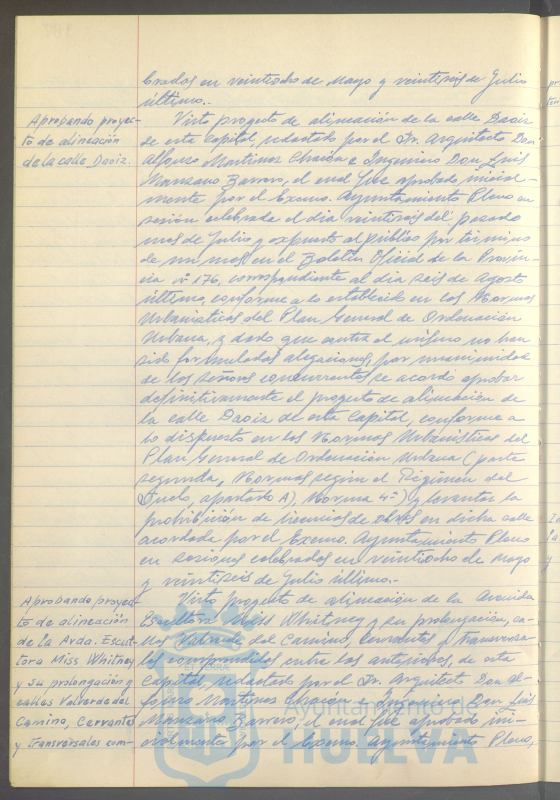 brados en veintiocho de Mayo y veintiseis de Julio
último.-
Aprobando proyec-
to de alineación
de la calle Daoiz.
Visto proyecto de alineación de la calle Daoiz
de esta Capital, redactado por el Sr. Arquitecto Don
Alfonso Martínez Chacón e Ingeniero Don Luis
Manzano Barrero, el cual fué aprobado inicial-
mente por el Excmo. Ayuntamiento Pleno en
sesión celebrada el día veintiseis del pasado
mes de Julio y expuesto al público por término
de un mes en el Boletín Oficial de la Provin-
cia nº 176, correspondiente al día seis de Agosto
último, conforme a lo establecido en las Normas
Urbanísticas del Plan General de Ordenación
Urbana, y dado que contra el mismo no han
sido formuladas alegaciones, por unanimidad
de los señores concurrentes se acordó aprobar
definitivamente el proyecto de alineación de
la calle Daoiz de esta Capital, conforme a
lo dispuesto en las Normas Urbanísticas del
Plan General de Ordenación Urbana (parte
segunda, Normas según el Régimen del
Suelo, apartado A), Norma 4ª) y levantar la
prohibición de licencias de obras en dicha calle
acordada por el Excmo. Ayuntamiento Pleno
en sesiones celebradas en veintiocho de Mayo
y veintiseis de Julio último.-
Aprobando proyec-
to de alineación
de la Avda. Escul-
tora Miss Whitney
y su prolongación y
calles Valverde del
Camino, Cervantes
y transversales com-
Visto proyecto de alineación de la Avenida
Escultora Miss Whitney y su prolongación, ca-
lles Valverde del Camino, Cervantes y transversa-
les comprendidas entre las anteriores, de esta
Capital, redactado por el Sr. Arquitecto Don Al-
fonso Martínez Chacón e Ingeniero Don Luis
Manzano Barrero, el cual fué aprobado ini-
cialmente por el Excmo. Ayuntamiento Pleno,
Ayuntamiento de
HUELVA